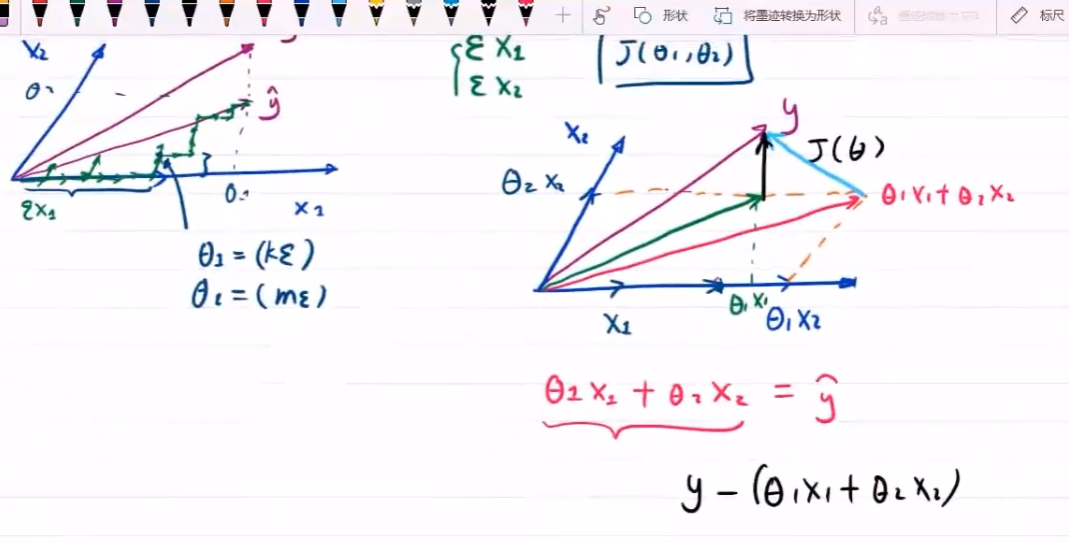 形状
将墨迹转换为形状
标尺
x₂
ŷ
εx₁
x₁
θ₁ = (kε)
θ₂ = (mε)
ε x₁
ε x₂
J(θ₁,θ₂)
x₂
y
J(θ)
θ₂ x₂
θ₁x₁ + θ₂x₂
x₁
θ₁x₁
θ₁x₂
θ₁x₁ + θ₂x₂ = ŷ
y − (θ₁x₁ + θ₂x₂)